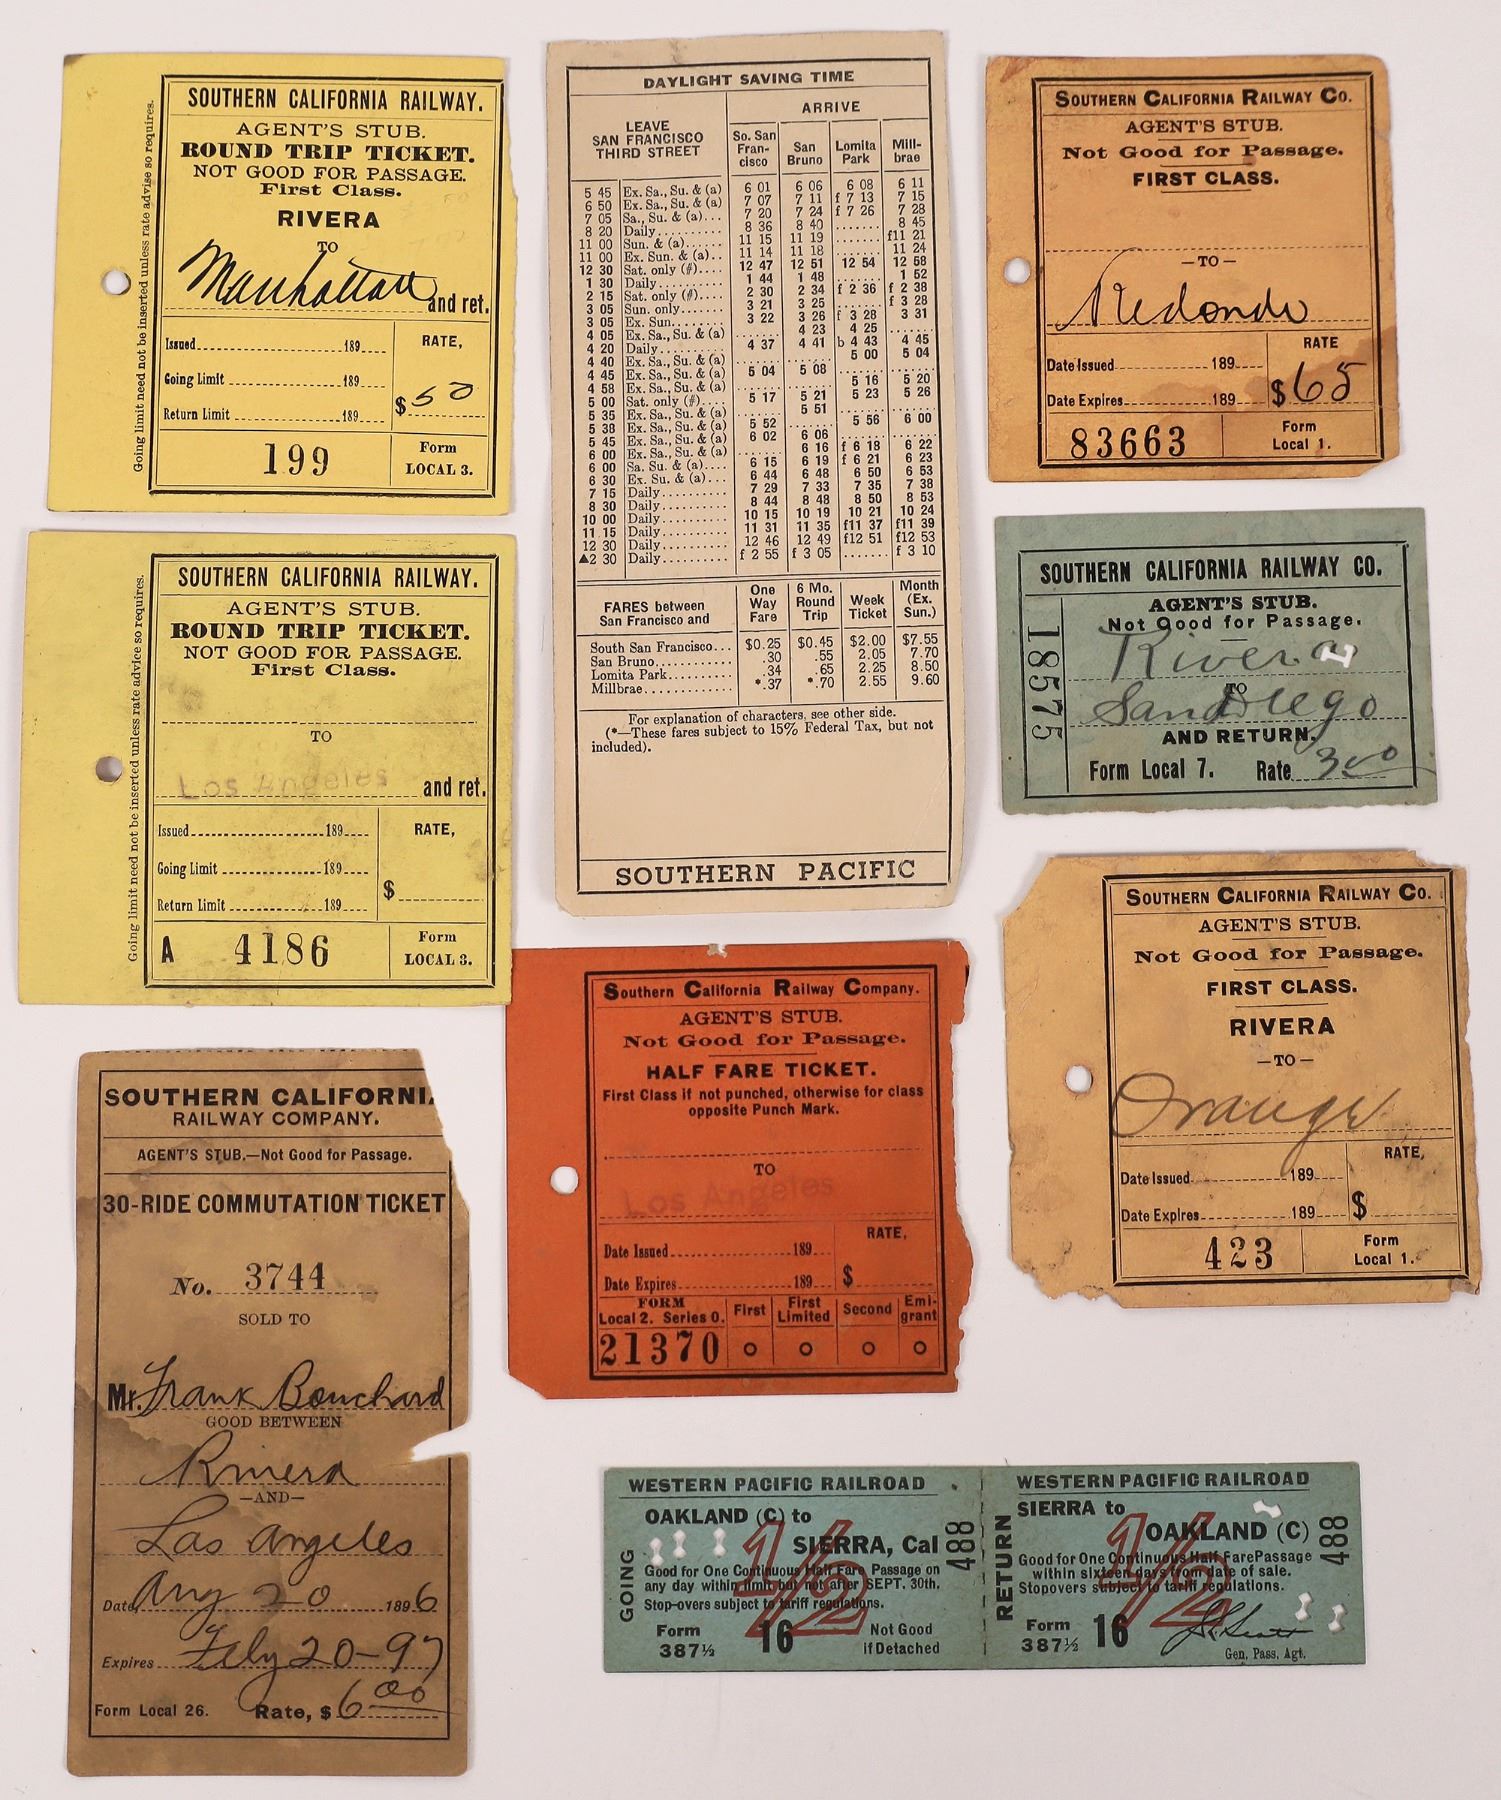 SOUTHERN CALIFORNIA RAILWAY.
AGENT'S STUB.
ROUND TRIP TICKET.
NOT GOOD FOR PASSAGE.
First Class.
RIVERA
TO
Manhattan and ret.
Issued 189
Going Limit 189
Return Limit 189
RATE,
$ 50
199
Form
LOCAL 3.
Going limit need not be inserted unless rate advise so requires.
SOUTHERN CALIFORNIA RAILWAY.
AGENT'S STUB.
ROUND TRIP TICKET.
NOT GOOD FOR PASSAGE.
First Class.
TO
Los Angeles and ret.
Issued 189
Going Limit 189
Return Limit 189
RATE,
$
A 4186
Form
LOCAL 3.
Going limit need not be inserted unless rate advice so requires.
SOUTHERN CALIFORNI
RAILWAY COMPANY.
AGENT'S STUB.—Not Good for Passage.
30-RIDE COMMUTATION TICKET
No. 3744
SOLD TO
Mr. Frank Bouchard
GOOD BETWEEN
Rivera
—AND—
Los Angeles
Date, Aug 20 1896
Expires Feby 20-97
Form Local 26. Rate, $ 6.00
DAYLIGHT SAVING TIME
LEAVE
SAN FRANCISCO
THIRD STREET
ARRIVE
So. San
Fran-
cisco
San
Bruno
Lomita
Park
Mill-
brae
5 45 Ex. Sa., Su. & (a) 6 01 6 06 6 08 6 11
6 50 Ex. Sa., Su. & (a) 7 07 7 11 f 7 13 7 15
7 05 Sa., Su. & (a) 7 20 7 24 f 7 26 7 28
8 20 Daily 8 36 8 40 8 45
11 00 Sun. & (a) 11 15 11 19 f11 21
11 00 Ex. Sun. & (a) 11 14 11 18 11 24
12 30 Sat. only (#) 12 47 12 51 12 54 12 58
1 30 Daily 1 44 1 48 1 52
2 15 Sat. only (#) 2 30 2 34 f 2 36 f 2 38
3 05 Sun. only 3 21 3 25 f 3 28
3 05 Ex. Sun. 3 22 3 26 f 3 28 3 31
4 05 Ex. Sa., Su. & (a) 4 23 4 25
4 20 Daily 4 37 4 41 b 4 43 4 45
4 40 Ex. Sa., Su. & (a) 5 00 5 04
4 45 Ex. Sa., Su. & (a) 5 04 5 08
4 58 Ex. Sa., Su. & (a) 5 16 5 20
5 00 Sat. only (#) 5 17 5 21 5 23 5 26
5 35 Ex. Sa., Su. & (a) 5 51
5 38 Ex. Sa., Su. & (a) 5 52 5 56 6 00
5 45 Ex. Sa., Su. & (a) 6 02 6 06
6 00 Ex. Sa., Su. & (a) 6 16 f 6 18 6 22
6 00 Sa. Su. & (a) 6 15 6 19 f 6 21 6 23
6 30 Ex. Su. & (a) 6 44 6 48 6 50 6 53
7 15 Daily 7 29 7 33 7 35 7 38
8 30 Daily 8 44 8 48 8 50 8 53
10 00 Daily 10 15 10 19 10 21 10 24
11 15 Daily 11 31 11 35 f11 37 f11 39
12 30 Daily 12 46 12 49 f12 51 f12 53
▲2 30 Daily f 2 55 f 3 05 f 3 10
FARES between
San Francisco and
One
Way
Fare
6 Mo.
Round
Trip
Week
Ticket
Month
(Ex.
Sun.)
South San Francisco... $0.25 $0.45 $2.00 $7.55
San Bruno .30 .55 2.05 7.70
Lomita Park .34 .65 2.25 8.50
Millbrae *.37 *.70 2.55 9.60
For explanation of characters, see other side.
(*—These fares subject to 15% Federal Tax, but not
included).
SOUTHERN PACIFIC
Southern California Railway Company.
AGENT'S STUB.
Not Good for Passage.
HALF FARE TICKET.
First Class if not punched, otherwise for class
opposite Punch Mark.
TO
Los Angeles
Date Issued 189
Date Expires 189
RATE,
$
FORM
Local 2. Series O.
21370
First
First
Limited
Second
Emi-
grant
SOUTHERN CALIFORNIA RAILWAY CO.
AGENT'S STUB.
Not Good for Passage.
FIRST CLASS.
—TO—
Redondo
Date Issued 189
Date Expires 189
RATE
$ 65
83663
Form
Local 1.
SOUTHERN CALIFORNIA RAILWAY CO.
AGENT'S STUB.
Not Good for Passage.
Rivera
TO
San Diego
AND RETURN.
Form Local 7. Rate 3.00
18575
SOUTHERN CALIFORNIA RAILWAY CO.
AGENT'S STUB.
Not Good for Passage.
FIRST CLASS.
RIVERA
—TO—
Orange
Date Issued 189
Date Expires 189
RATE,
$
423
Form
Local 1.
WESTERN PACIFIC RAILROAD
OAKLAND (C) to
SIERRA, Cal
1/2
Good for One Continuous Half Fare Passage on
any day within limit but not after SEPT. 30th.
Stop-overs subject to tariff regulations.
Form
387½
16
Not Good
if Detached
GOING
488
WESTERN PACIFIC RAILROAD
SIERRA to
OAKLAND (C)
1/2
Good for One Continuous Half Fare Passage
within sixteen days from date of sale.
Stopovers subject to tariff regulations.
Form
387½
16
Gen. Pass. Agt.
RETURN
488